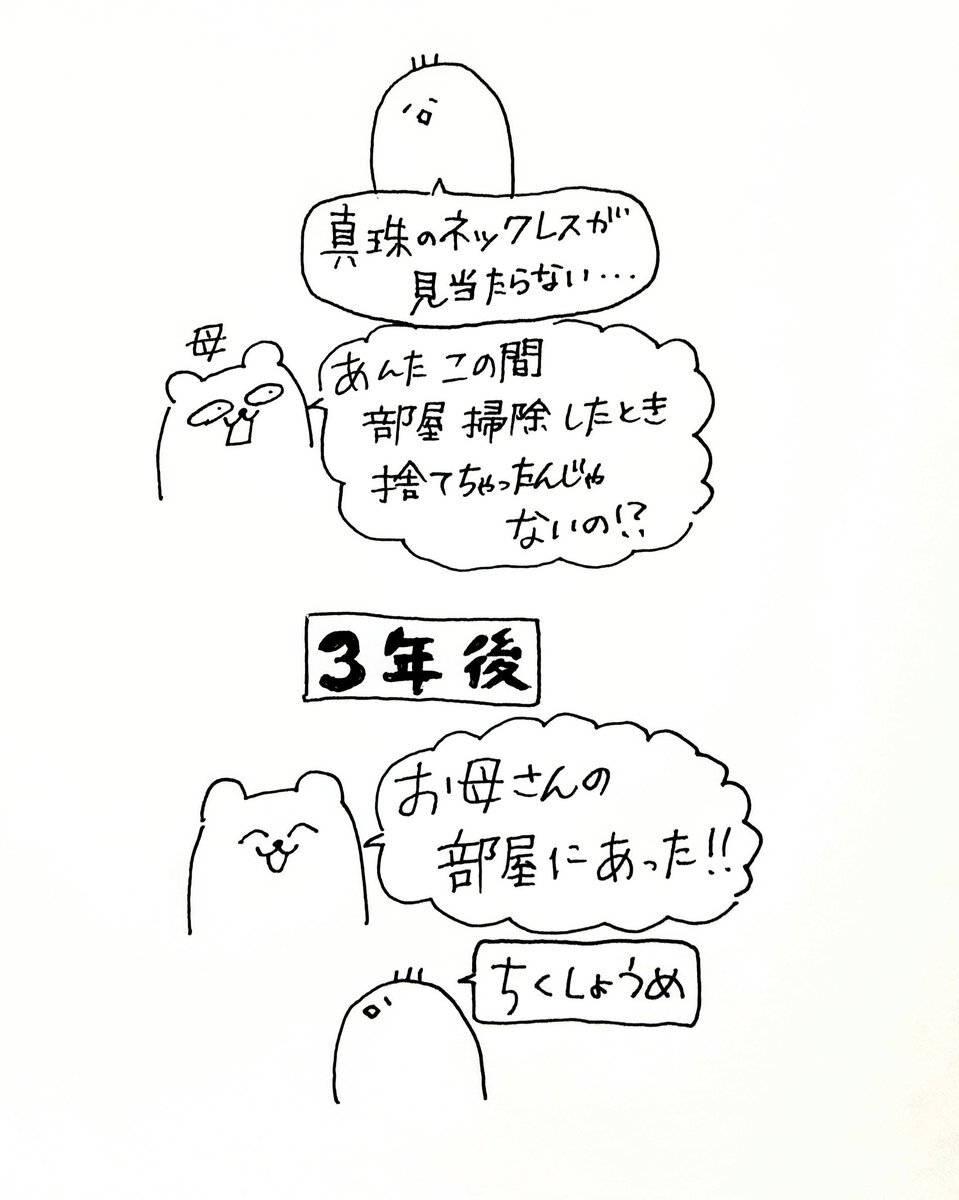 真珠のネックレスが
見当たらない…
母
あんたこの間
部屋掃除したとき
捨てちゃったんじゃ
ないの!?
3年後
お母さんの
部屋にあった!!
ちくしょうめ